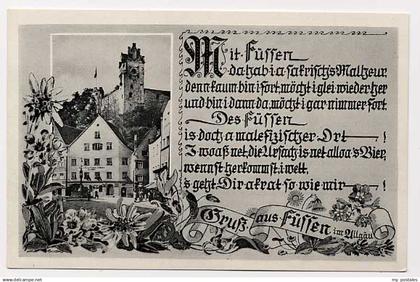 Mit Füssen
da hab i a sakrisch's Malheur,
denn kaum bin i fort, möcht i glei wieder her
und bin i dann da, möcht i gar nimmer fort.
Des Füssen
is doch a malefizischer Ort — !
I woaß net, die Ursach is net alloa's Bier,
wennst herkommst, i wett,
s'geht Dir akrat so wie mir — !
Gruß aus Füssen im Allgäu
my-postales